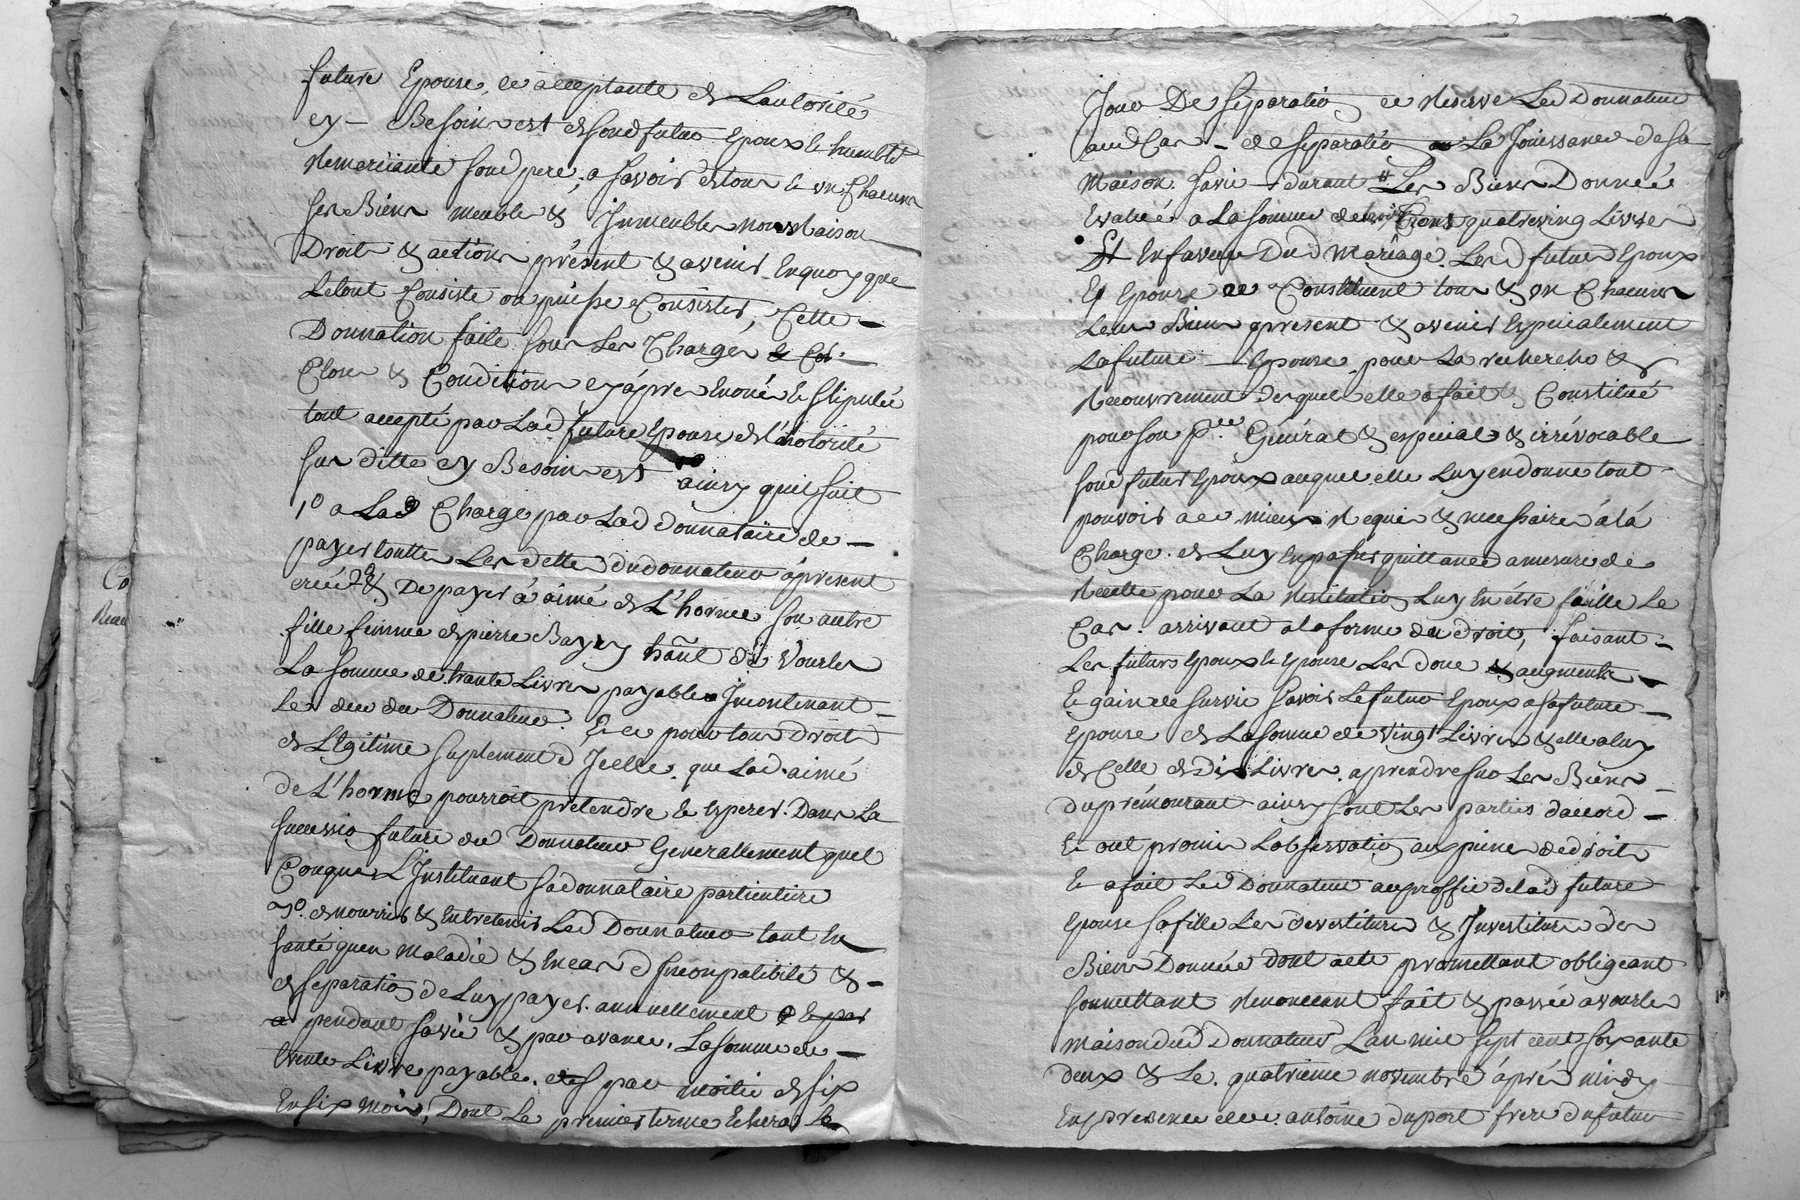 future Epouse, ce acceptante de Lautorité
ey Besoin est de sond futur Epoux & humble
Remerciante sond pere, a savoir de tous & un Chacuns
ses Biens meuble & Inmeubles noms Raison
Droits & actions présent & avenir Enquoy que
Letout Consiste ou puisse Consister, Cette
Donnation faite sous Les Charges
Closes & Conditions ey âpres Enoncé & stipulée
tout accepté par Lad. future Epouse de L'autorité
sus ditte ey Besoin est ainsy quil suit
1º a La Charge par Lad donnataire de
payer toutte Les dette dudonnateur âpresent
creéé 2º & De payer â aimé de L'horme son autre
fille femme de pierre Bayey hant de Vourles
La somme de trante Livres payable Incontinant
Le deces du Donnateur. & ce pour tous Droits
de Légitime suplement d'Icelle. que Lad. aimé
de L'horme pourroit prétendre & Esperer. Dans La
succession future du Donnateur Generallement quel
Conques L'Instituant sa donnataire particuliere
3º. de nourrir & Entretenir Led Donnateur tant En
santé quen Maladie & En cas d'Incompatibilité &
de separation de Luy payer. annuellement
pendant sa vie & par avance. La somme de
trente Livre payable. par moitié de six
En six mois, Dont Le premier terme Echera Le
Jour De séparation ce Réserve Led Donnateur
aud Cas de separation La Jouissance de sa
Maison sa vie durant Les Biens Donnée
Evalué a La somme de trois Cens quatreving Livres
Et En faveur Dud Mariage. Les d futurs Epoux
Et Epouse ce Constituent tous & un Chacuns
Leurs Biens âpresent & avenir Especialement
La future Epouse pour La recherche &
Recouvrement desquels elle a fait & Constitué
pour son p.eur Géneral & especial & irrévocable
sond futur Epoux auquel elle Luy en donne tout
pouvoir a ce mieux Requis & necessaire â la
Charge de Luy En passer quittance a mesure de
Recette pour La Restitution Luy En être faitte Le
Cas. arrivant a la forme du droit, faisant
Les futurs Epoux & Epouse Les done & augments
& gain de survie savoir Le futur Epoux a sa future
Epouse de La somme de Vingt Livres & elle a luy
de Celle de Dix Livres. a prendre sur Les Biens
du prémourant ainsy sont Les parties daccord
& ont promis Lobservation aux peines de droits
& a fait Led Donnateur au proffit de lad future
Epouse sa fille Les devestiture & Investiture des
Biens Donnée dont acte promettant obligeant
soumettant Renonceant fait & passée a vourles
maison dud Donnateur Lan mil sept cent soixante
deux & Le quatrieme novembre âprés midy
En presence de antoine duport frere du futur